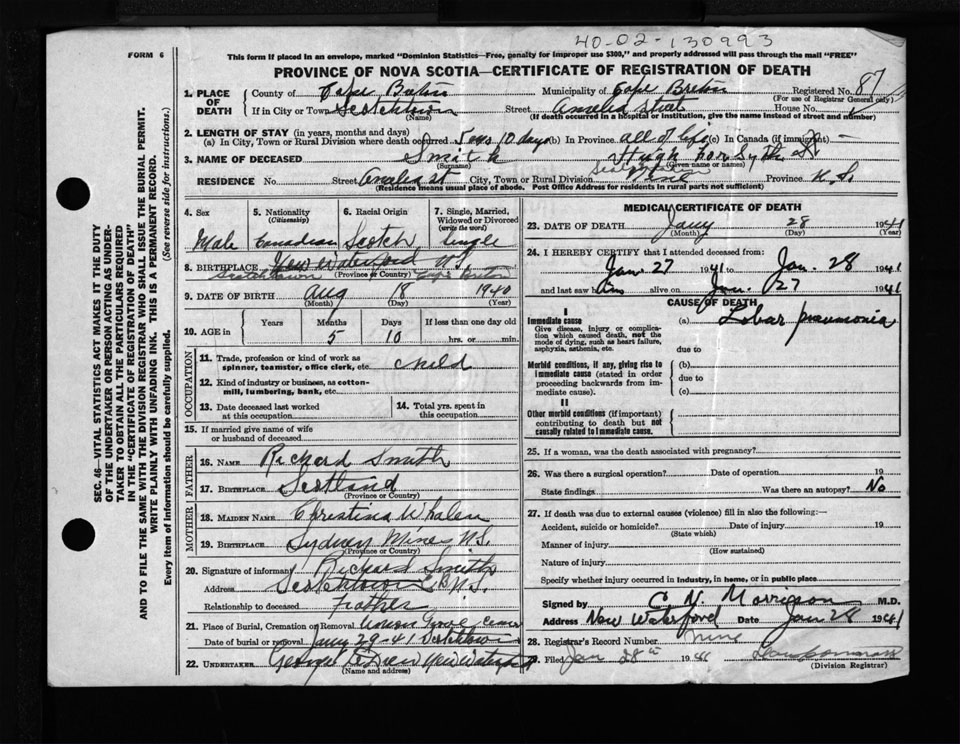 40-02-130993
FORM 6
This form if placed in an envelope, marked "Dominion Statistics—Free, penalty for improper use $300," and properly addressed will pass through the mail "FREE"
PROVINCE OF NOVA SCOTIA—CERTIFICATE OF REGISTRATION OF DEATH
SEC. 46—VITAL STATISTICS ACT MAKES IT THE DUTY
OF THE UNDERTAKER OR PERSON ACTING AS UNDER-
TAKER TO OBTAIN ALL THE PARTICULARS REQUIRED
IN THE "CERTIFICATE OF REGISTRATION OF DEATH"
AND TO FILE THE SAME WITH THE DIVISION REGISTRAR WHO SHALL ISSUE THE BURIAL PERMIT.
WRITE PLAINLY WITH UNFADING INK. THIS IS A PERMANENT RECORD.
Every item of information should be carefully supplied. (See reverse side for instructions.)
1. PLACE OF DEATH County of Cape Breton Municipality of Cape Breton Registered No. 87
(For use of Registrar General only)
If in City or Town Scotchtown Street Amelia Street House No.
(Name) (If death occurred in a hospital or institution, give the name instead of street and number)
2. LENGTH OF STAY (in years, months and days)
(a) In City, Town or Rural Division where death occurred 5 mos 10 days (b) In Province all of life (c) In Canada (if immigrant) —
3. NAME OF DECEASED Smith Hugh
(Surname) (Given name or names)
RESIDENCE No. Street Amelia st City, Town or Rural Division Province N.S.
(Residence means usual place of abode. Post Office Address for residents in rural parts not sufficient)
4. Sex Male
5. Nationality (Citizenship) Canadian
6. Racial Origin Scotch
7. Single, Married, Widowed or Divorced (write the word) Single
8. BIRTHPLACE New Waterford N.S.
Scotchtown (Province or Country) Cape Breton
9. DATE OF BIRTH Aug 18 1940
(Month) (Day) (Year)
10. AGE in Years Months 5 Days 10 If less than one day old hrs. or min.
OCCUPATION
11. Trade, profession or kind of work as spinner, teamster, office clerk, etc. child
12. Kind of industry or business, as cotton-mill, lumbering, bank, etc.
13. Date deceased last worked at this occupation
14. Total yrs. spent in this occupation
15. If married give name of wife or husband of deceased
FATHER
16. NAME Richard Smith
17. BIRTHPLACE Scotland
(Province or Country)
MOTHER
18. MAIDEN NAME Christina Whalen
19. BIRTHPLACE Sydney Mines N.S.
(Province or Country)
20. Signature of informant Richard Smith
Address Scotchtown C.B. N.S.
Relationship to deceased Father
21. Place of Burial, Cremation or Removal Union Grove
Date of burial or removal Jany 29-41 Scotchtown
22. UNDERTAKER George New Waterford
(Name and address)
MEDICAL CERTIFICATE OF DEATH
23. DATE OF DEATH Jany 28 1941
(Month) (Day) (Year)
24. I HEREBY CERTIFY that I attended deceased from:
Jan 27 1941 to Jan. 28 1941
and last saw him alive on Jan. 27 1941
CAUSE OF DEATH
I
Immediate cause (a) Lobar pneumonia
Give disease, injury or complica-
tion which caused death, not the
mode of dying, such as heart failure,
asphyxia, asthenia, etc. due to
Morbid conditions, if any, giving rise to (b)
immediate cause (stated in order due to
proceeding backwards from im-
mediate cause). (c)
II
Other morbid conditions (if important)
contributing to death but not
causally related to immediate cause.
25. If a woman, was the death associated with pregnancy?
26. Was there a surgical operation? Date of operation 19
State findings Was there an autopsy? No
27. If death was due to external causes (violence) fill in also the following:—
Accident, suicide or homicide? Date of injury 19
(State which)
Manner of injury
(How sustained)
Nature of injury
Specify whether injury occurred in industry, in home, or in public place
Signed by C. N. Morrison M.D.
Address New Waterford Date Jan 28 1941
28. Registrar's Record Number nine
29. Filed Jan 28th 1941
(Division Registrar)